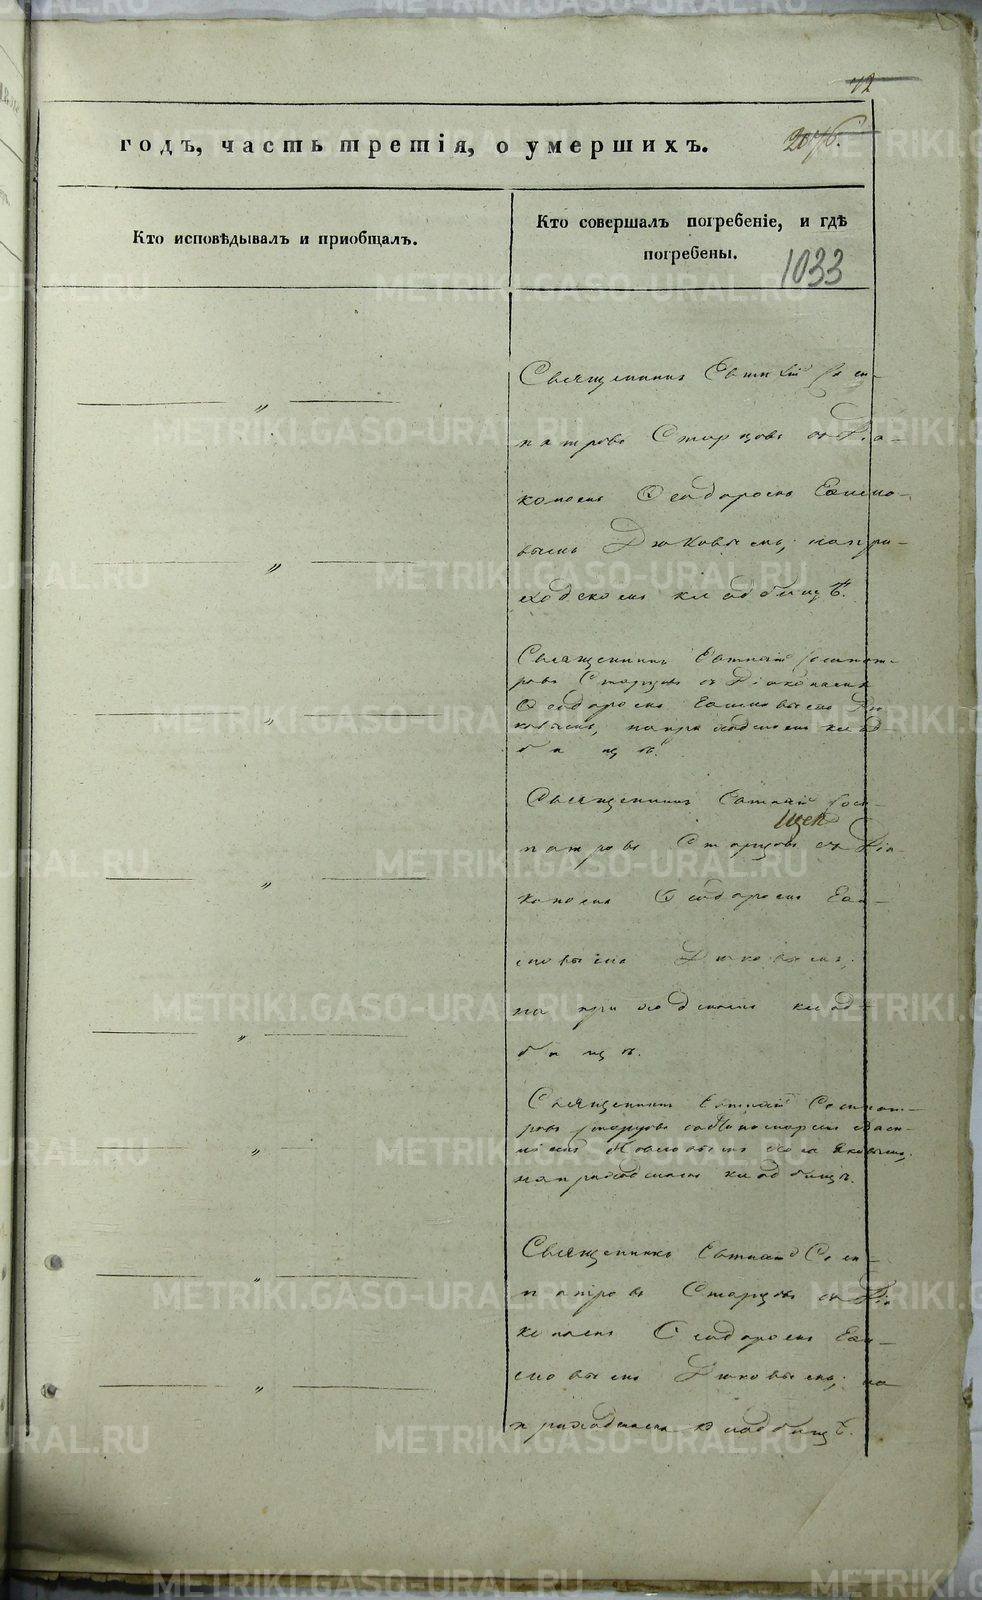 42
годъ, часть третія, о умершихъ.
2076.
Кто исповѣдывалъ и пріобщалъ.
Кто совершалъ погребеніе, и гдѣ
погребены.
1033
Священникъ Евтихій Соси-
патровъ Старцовъ съ Діа-
кономъ Ѳеодоромъ
Дюковымъ, на при-
ходскомъ кладбищѣ.
Священникъ Евтихій Сосипат-
ровъ Старцовъ съ Діакономъ
Ѳеодоромъ Дю-
ковымъ, на приходскомъ клад-
бищѣ.
Священникъ Евтихій Соси-
патровъ Старцовъ съ Діа-
кономъ Ѳеодоромъ
Дюковымъ,
на приходскомъ клад-
бищѣ.
Священникъ Евтихій Сосипат-
ровъ Старцовъ съ Пономаремъ Васи-
на приходскомъ кладбищѣ.
Священникъ Евтихій Соси-
патровъ Старцовъ съ Діа-
кономъ Ѳеодоромъ
Дюковымъ, на
приходскомъ кладбищѣ.
METRIKI.GASO-URAL.RU